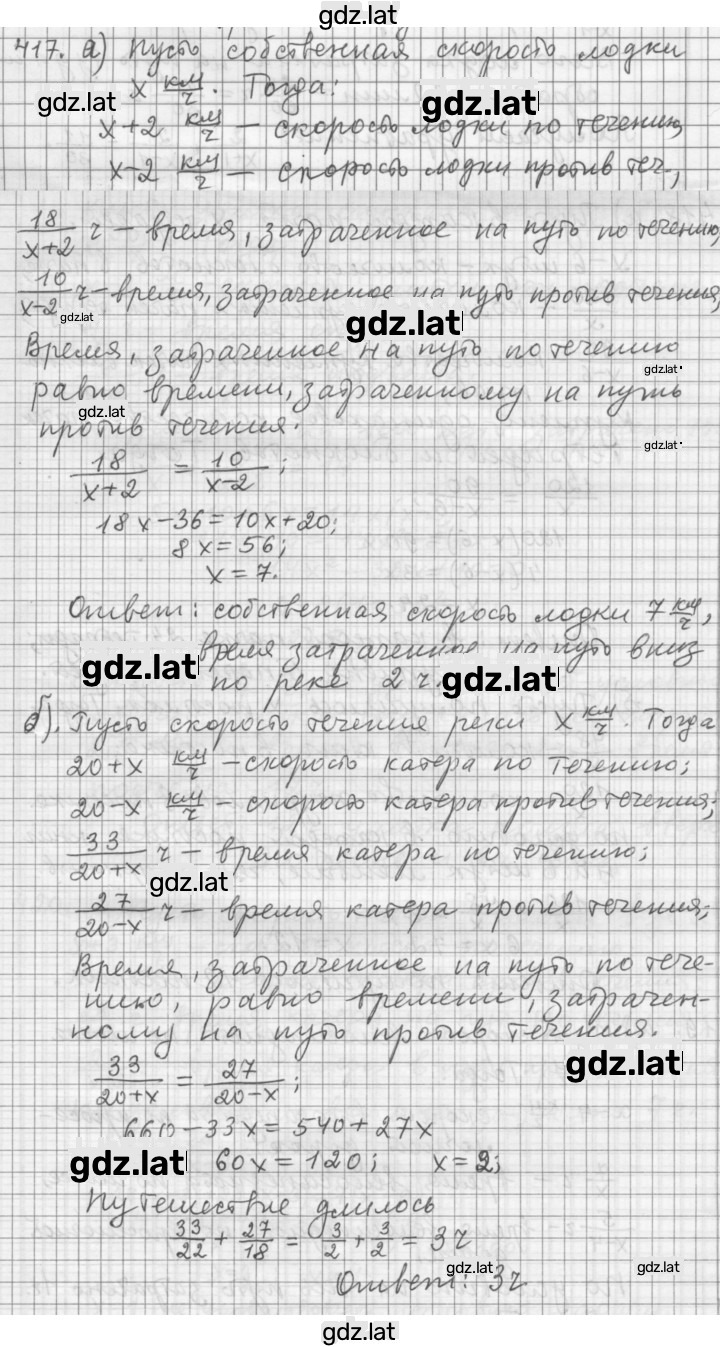 gdz.lat
417. а) Пусть собственная скорость лодки
x км/ч. Тогда:
gdz.lat
gdz.lat
x+2 км/ч – скорость лодки по течению,
x-2 км/ч – скорость лодки против теч.,
18/(x+2) ч – время, затраченное на путь по течению,
10/(x-2) ч – время, затраченное на путь против течения,
gdz.lat
gdz.lat
Время, затраченное на путь по течению
gdz.lat
равно времени, затраченному на путь
gdz.lat
против течения.
gdz.lat
18/(x+2) = 10/(x-2);
18x-36=10x+20;
8x=56;
x=7.
Ответ: собственная скорость лодки 7 км/ч,
время затраченное на путь вниз
gdz.lat
по реке 2 ч.
gdz.lat
б). Пусть скорость течения реки x км/ч. Тогда
20+x км/ч – скорость катера по течению;
20-x км/ч – скорость катера против течения;
33/(20+x) ч – время катера по течению;
gdz.lat
27/(20-x) ч – время катера против течения;
Время, затраченное на путь по тече-
нию, равно времени, затрачен-
ному на путь против течения.
gdz.lat
33/(20+x) = 27/(20-x);
660-33x=540+27x
gdz.lat
60x=120; x=2;
Путешествие длилось
33/22 + 27/18 = 3/2 + 3/2 = 3ч
gdz.lat
gdz.lat
Ответ: 3ч
gdz.lat